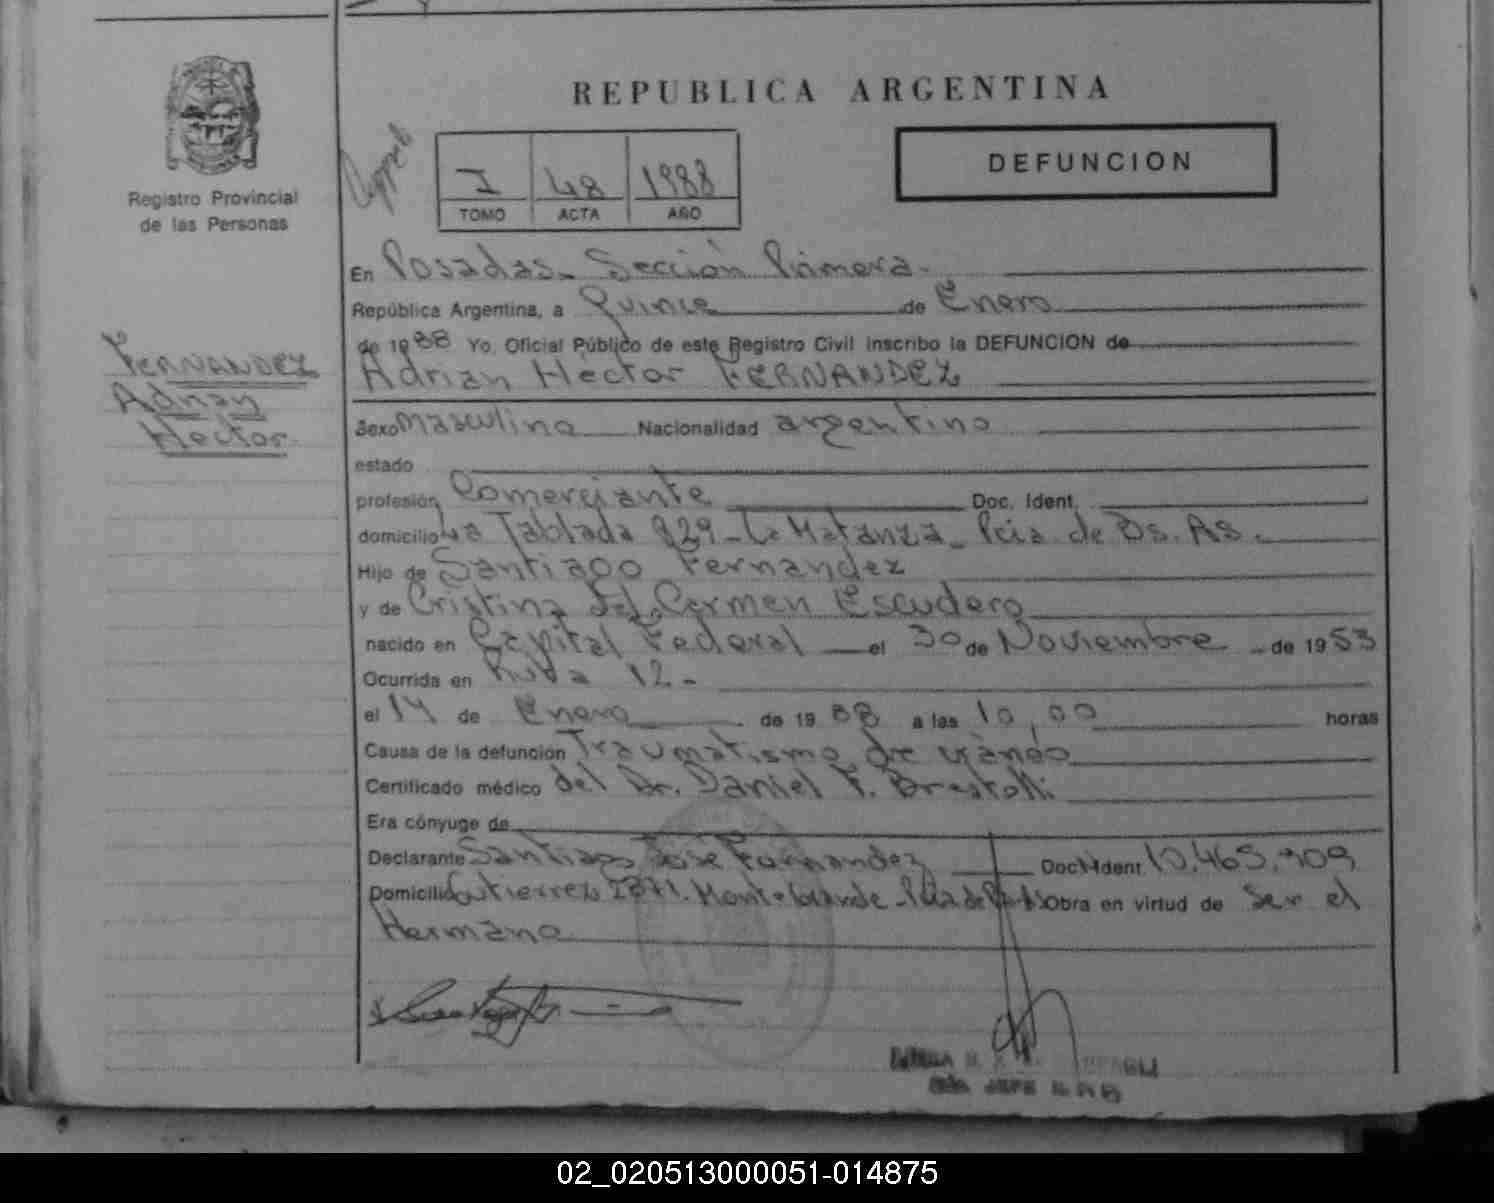 REPUBLICA ARGENTINA
Registro Provincial
de las Personas
I 48 1988
TOMO ACTA AÑO
DEFUNCION
FERNANDEZ
Adrian
Hector.
En Posadas. Sección Primera.
República Argentina, a Quince de Enero
de 1988 Yo, Oficial Público de este Registro Civil inscribo la DEFUNCION de
Adrian Hector FERNANDEZ
Sexo masculino Nacionalidad argentino
estado
profesión Comerciante Doc. Ident.
domicilio La Tablada 829 - La Matanza - Pcia. de Bs. As.
Hijo de Santiago Fernandez
y de Cristina del Carmen Escudero
nacido en Capital Federal el 30 de Noviembre de 1953
Ocurrida en Ruta 12 -
el 14 de Enero de 1988 a las 10,00 horas
Causa de la defunción Traumatismo de
Certificado médico del Dr. Daniel F.
Era cónyuge de
Declarante Santiago José Fernandez Doc. Ident. 10.465.909
Domicilio Gutierrez Monte Grande Obra en virtud de Ser el
Hermano
02_020513000051-014875